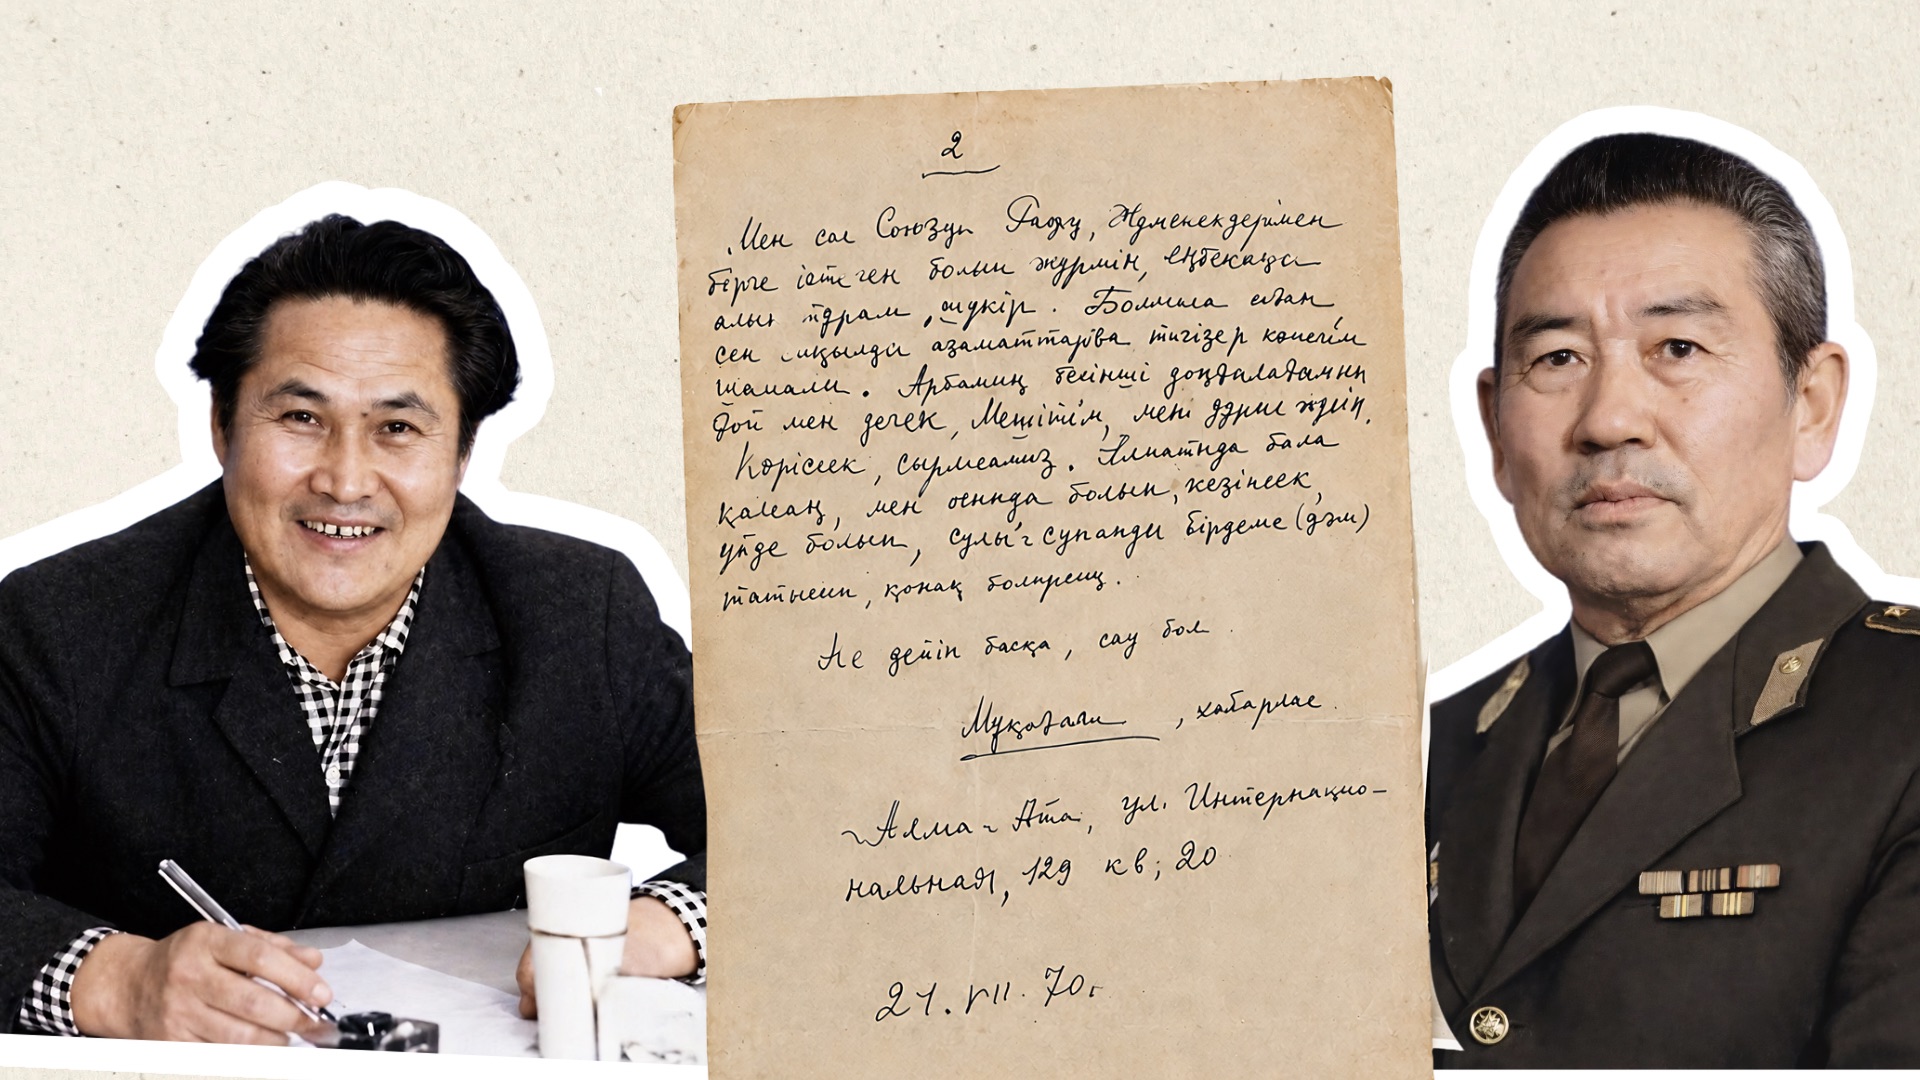 2
Мен сол Союзда Ғафу, Жұмекендерімен
бірге істеген болып жүрмін, еңбекақы
алып тұрам, шүкір. Болмыса саған,
сен сиқылды азаматтарға тигізер көмегім
шамалы. Арбамың бесінші доңғалағымын
ғой мен деген, Мешітім, мені дұрыс
Көріссек, сырлсамыз. Алматыда бала
қалсаң, мен осында болып, кезінсек,
үйде болып, сулы-супанды бірдеме (дәм)
татысып, қонақ болырсың.
Не дейін басқа, сау бол.
Мұқағали, хабарлас.
Алма-Ата, ул. Интернацио-
нальная, 129 кв; 20
21.VII.70г